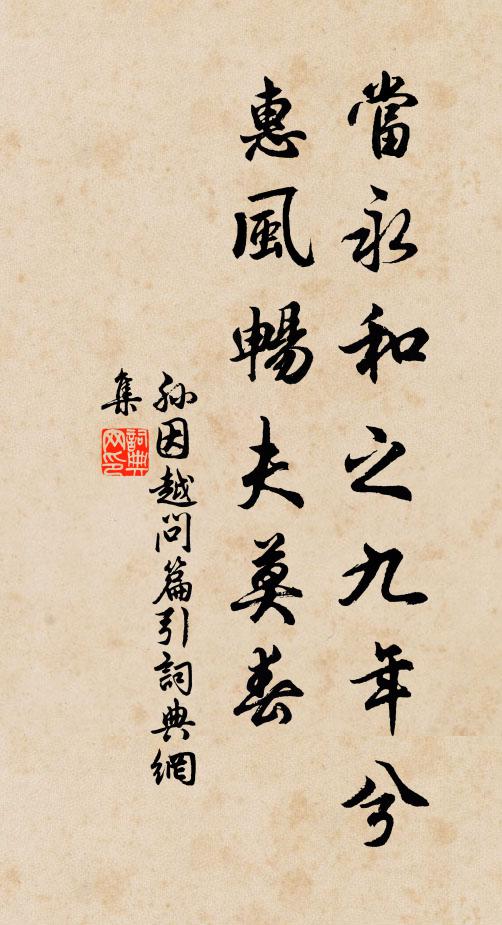 當永和之九年兮
惠風暢夫莫春
孫因越問篇引詞典網
集
詞典
网印